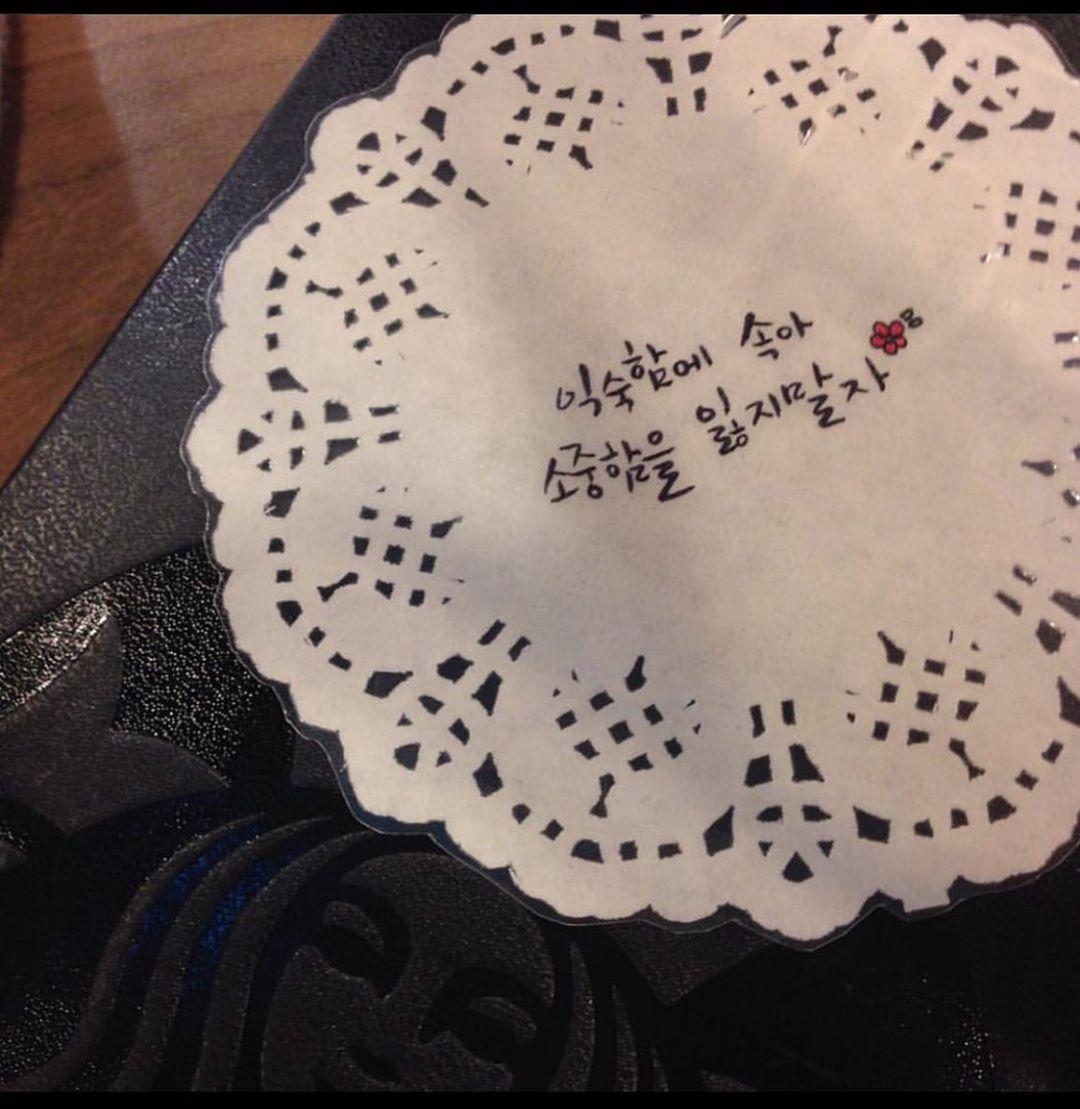 익숙함에 속아
소중함을 잃지말자